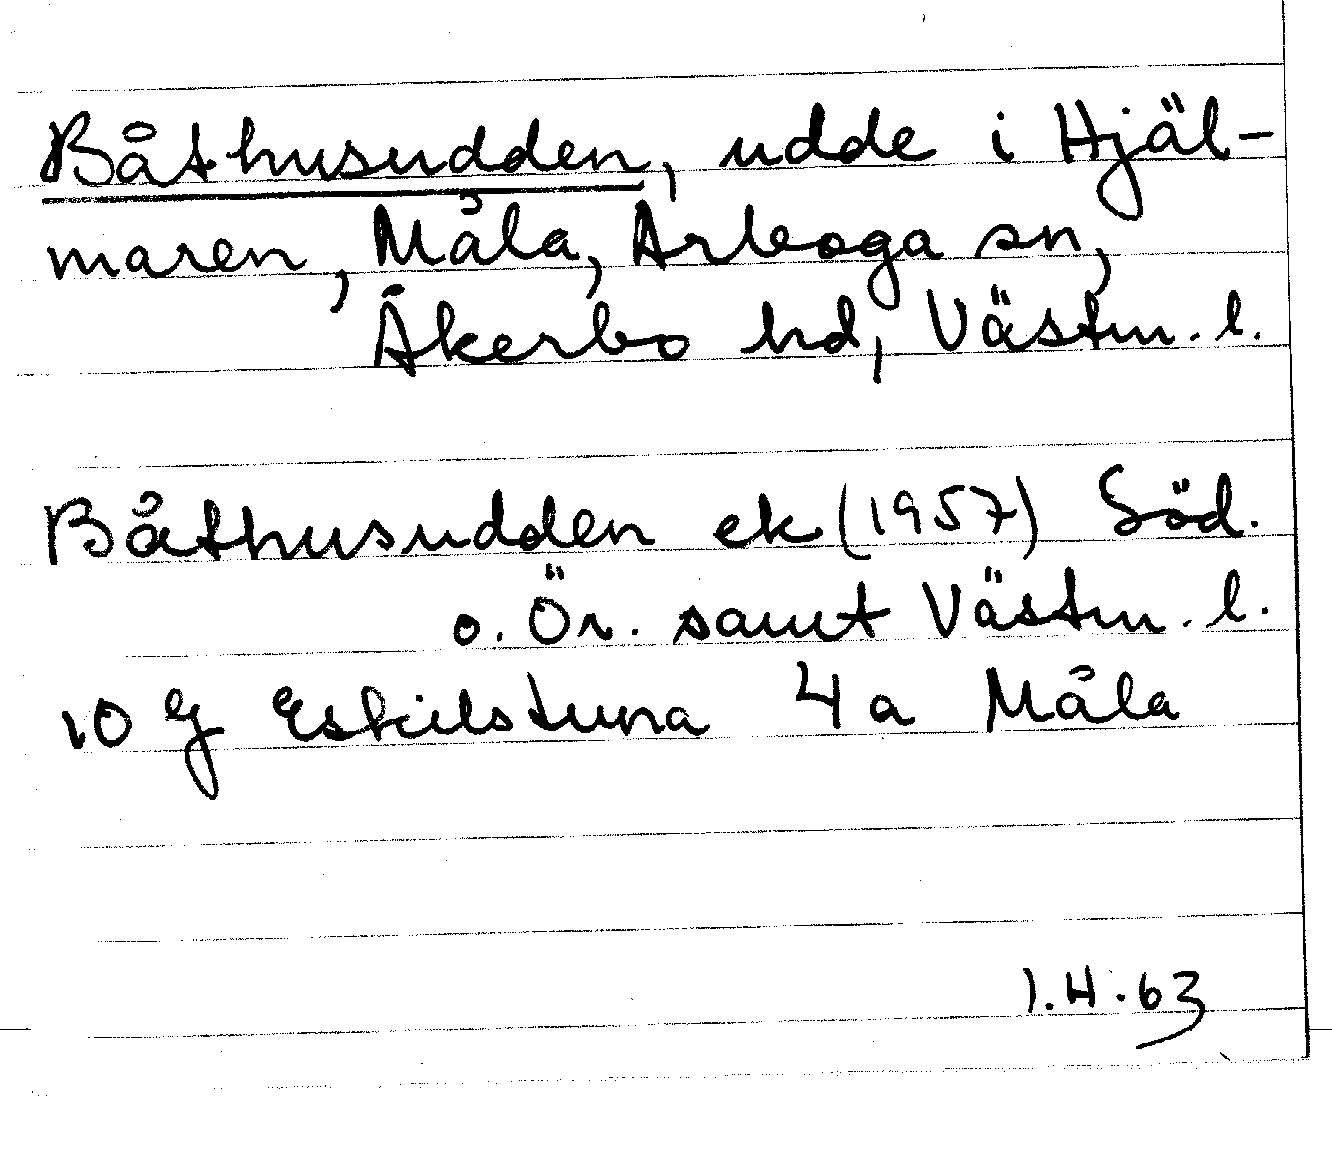 Båthusudden, udde i Hjäl-
maren, Måla, Arboga sn,
Åkerbo hd, Västm. l.
Båthusudden ek (1957) Söd.
o. Ör. samt Västm. l.
10 G Eskilstuna 4a Måla
1.4.63